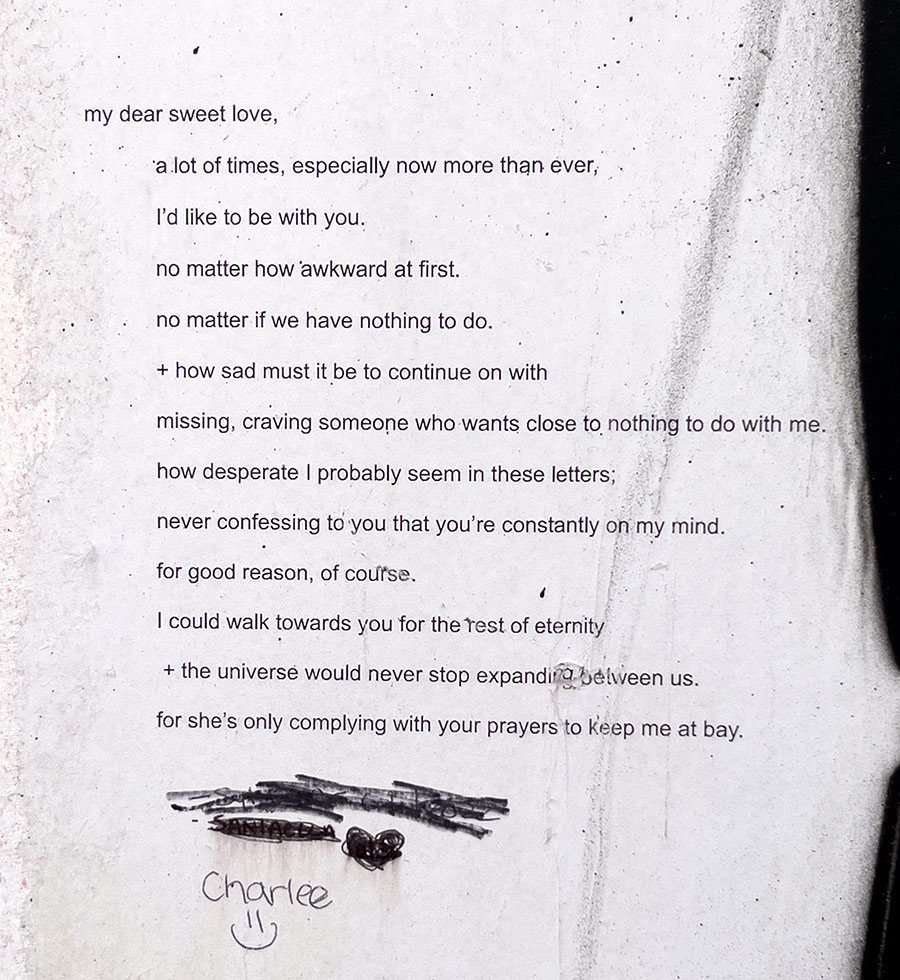 my dear sweet love,
a lot of times, especially now more than ever,
I'd like to be with you.
no matter how awkward at first.
no matter if we have nothing to do.
+ how sad must it be to continue on with
missing, craving someone who wants close to nothing to do with me.
how desperate I probably seem in these letters;
never confessing to you that you're constantly on my mind.
for good reason, of course.
I could walk towards you for the rest of eternity
+ the universe would never stop expanding between us.
for she's only complying with your prayers to keep me at bay.
Charlee